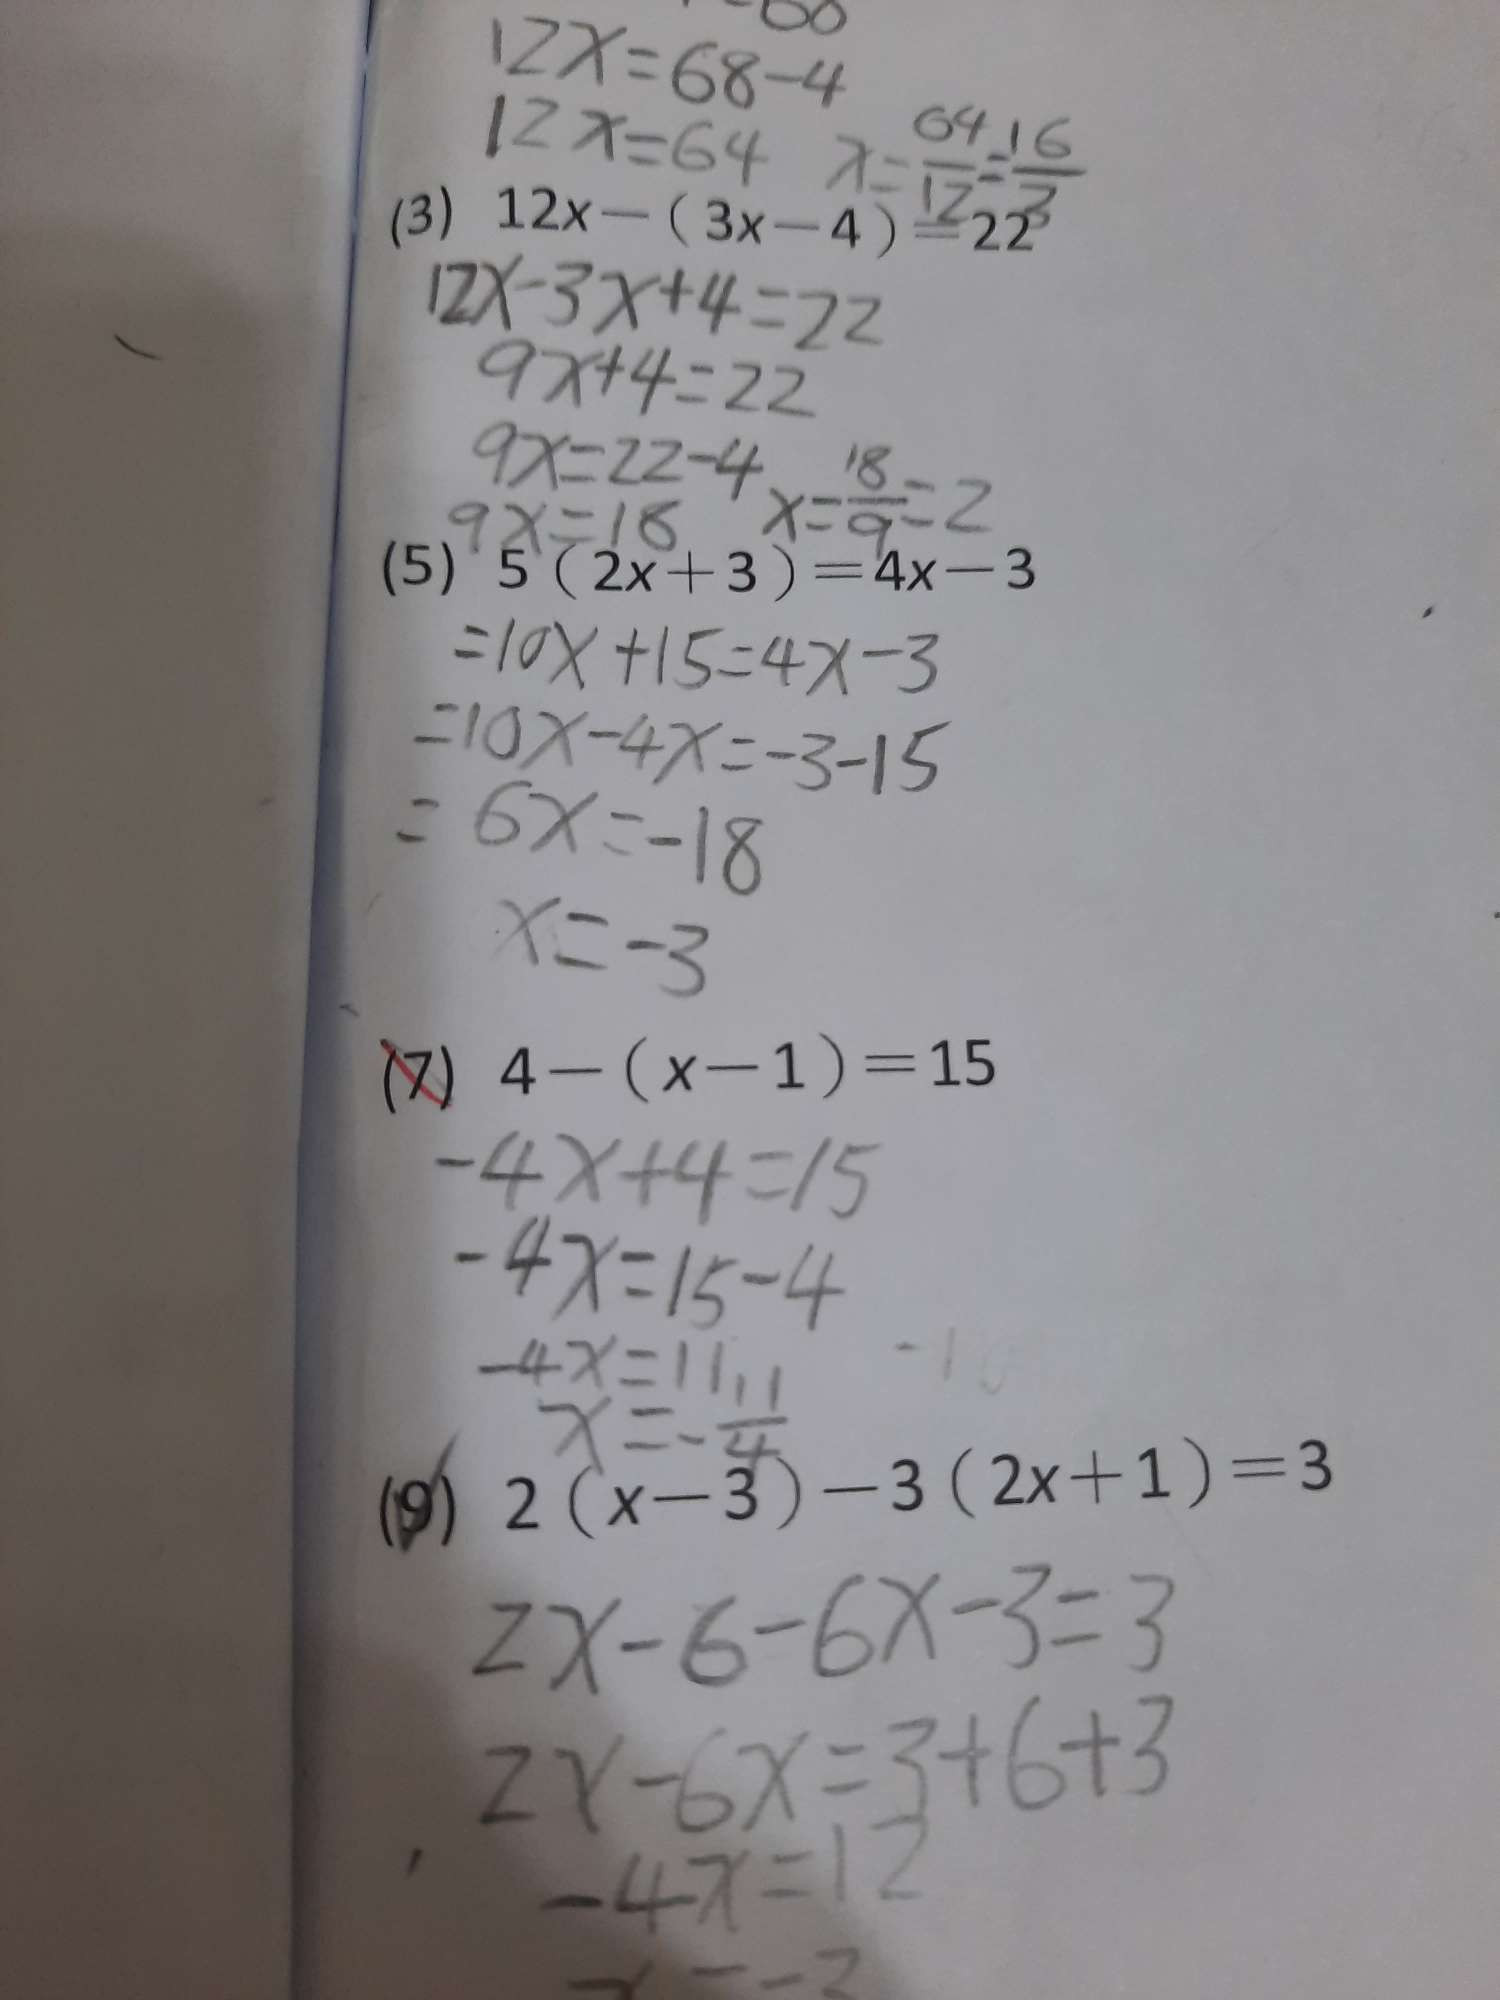 12x=68-4
12x=64 x=64/12=16/3
(3) 12x-(3x-4)=22
12x-3x+4=22
9x+4=22
9x=22-4
9x=18 x=18/9=2
(5) 5(2x+3)=4x-3
=10x+15=4x-3
=10x-4x=-3-15
=6x=-18
x=-3
(7) 4-(x-1)=15
-4x+4=15
-4x=15-4
-4x=11
x=-11/4
(9) 2(x-3)-3(2x+1)=3
2x-6-6x-3=3
2x-6x=3+6+3
-4x=12